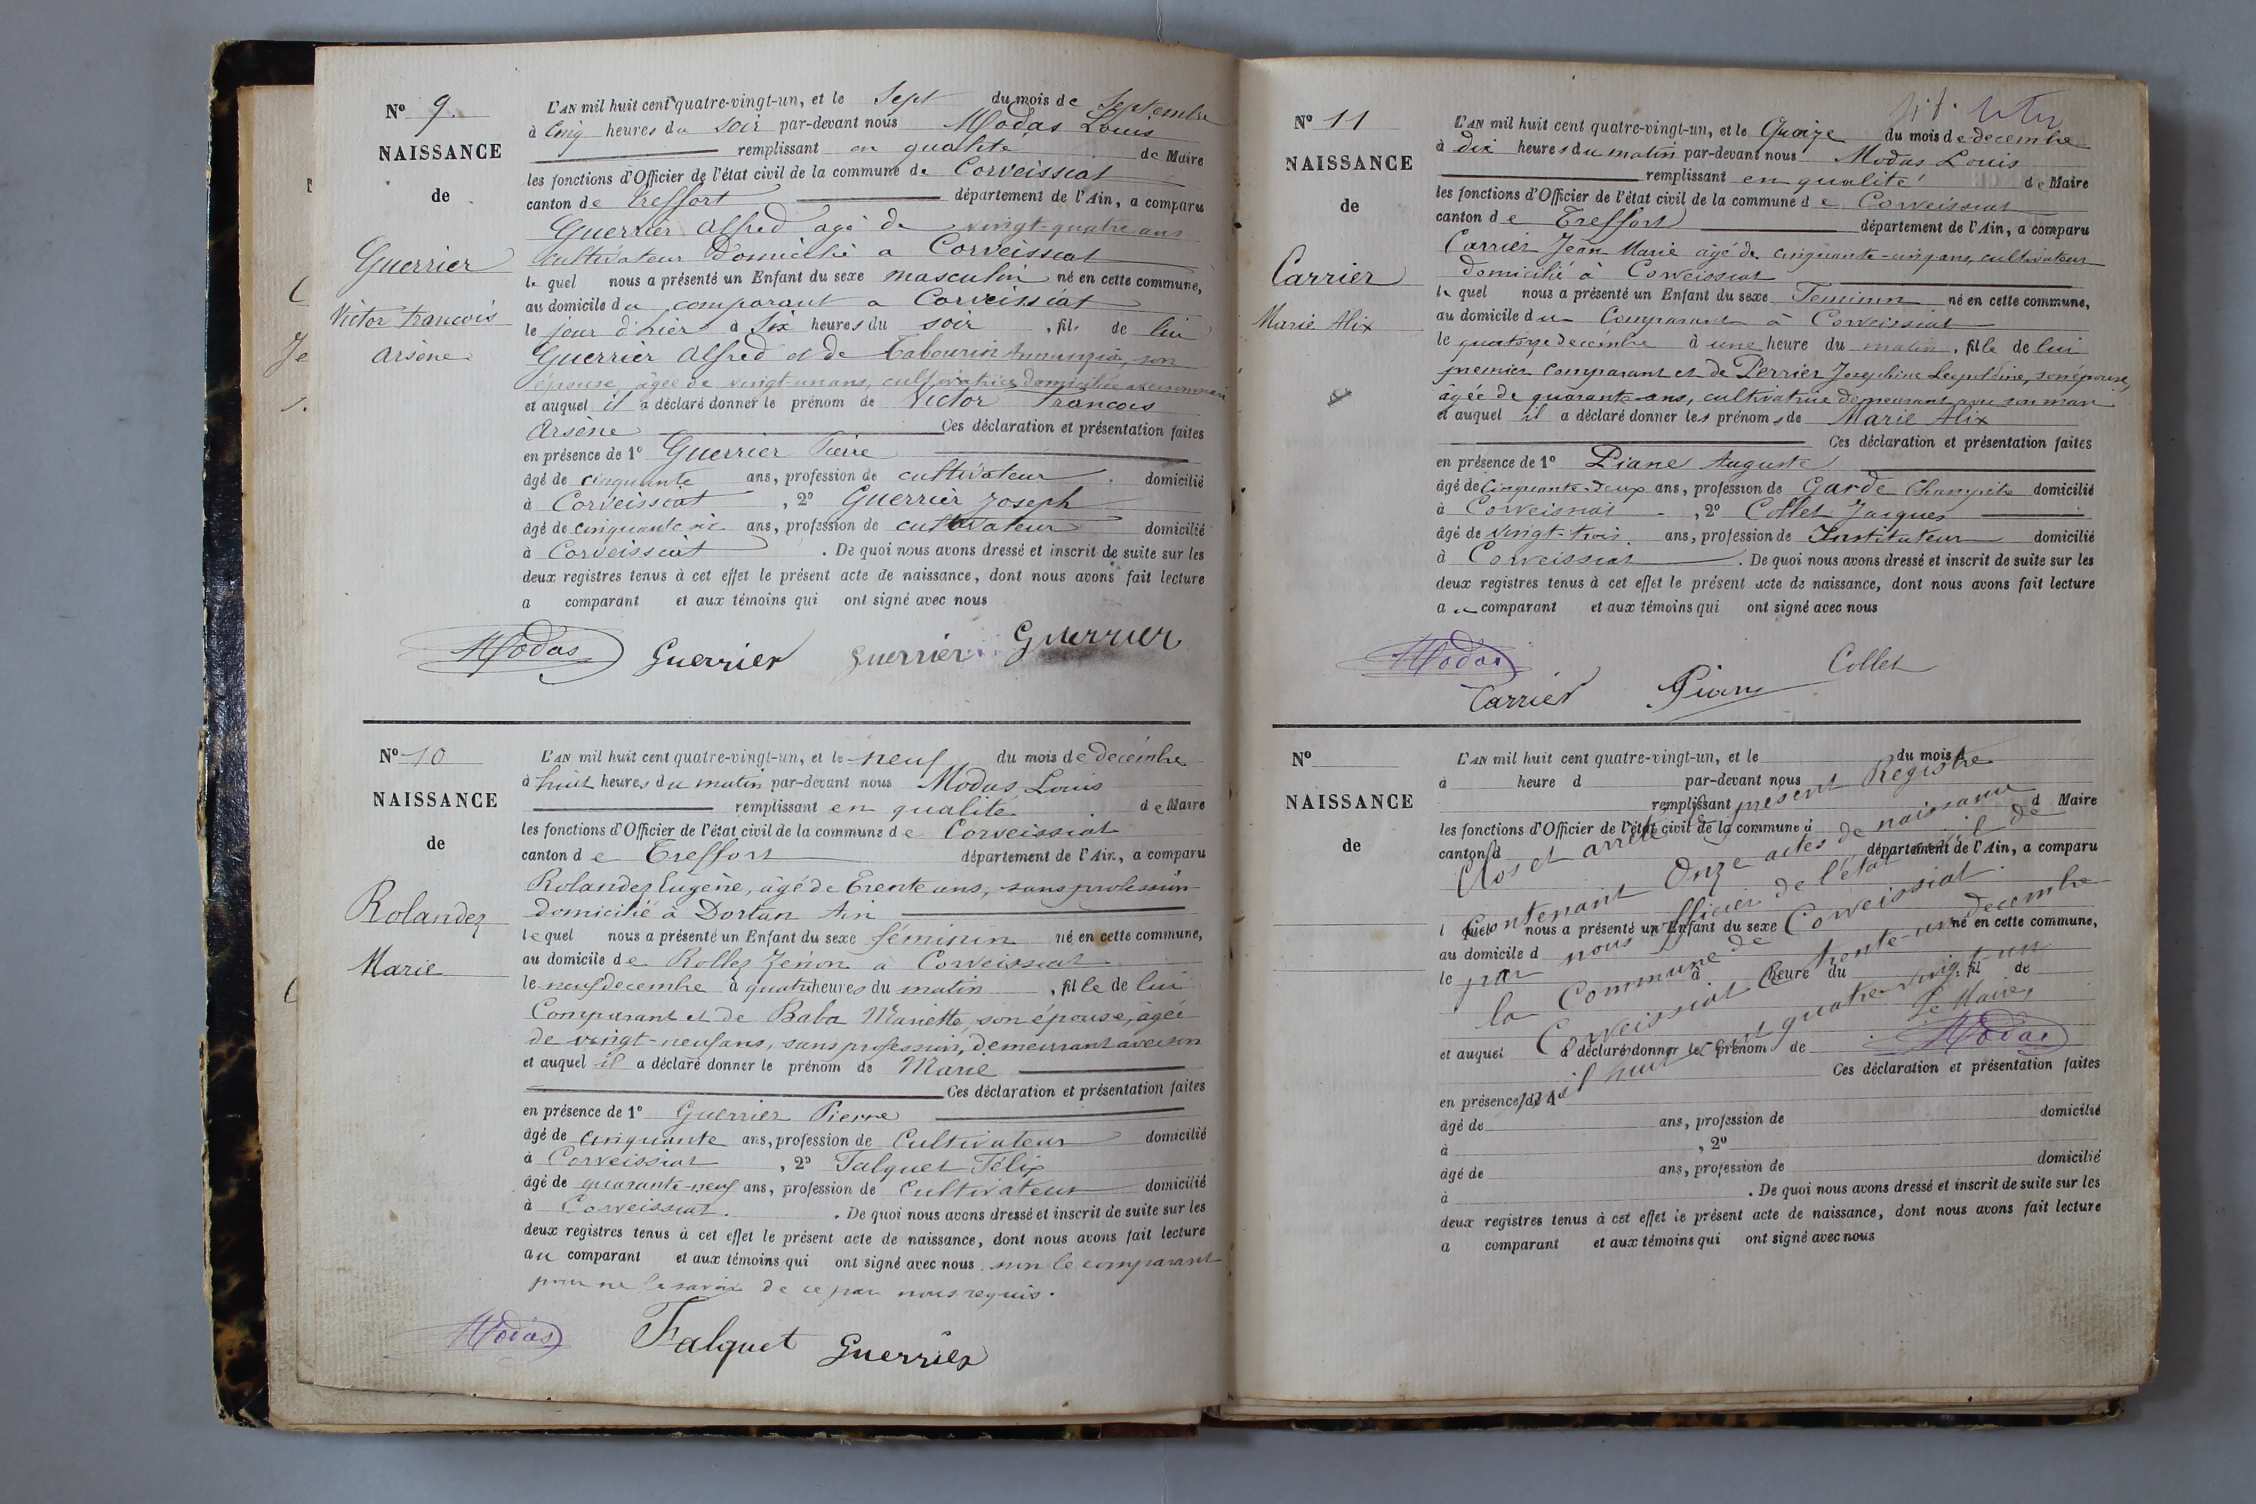 N° 9
NAISSANCE
de
Guerrier
Victor francois
Arsène
L'AN mil huit cent quatre-vingt-un, et le Sept du mois de Septembre
à Cinq heures du soir par-devant nous Modas Louis
remplissant en qualité de Maire
les fonctions d'Officier de l'état civil de la commune de Corveissiat
canton de Treffort département de l'Ain, a comparu
Guerrier Alfred agé de vingt-quatre ans
cultivateur Domicilié a Corveissiat
le quel nous a présenté un Enfant du sexe masculin né en cette commune,
au domicile du comparant a Corveissiat
le jour d'hier à Six heures du soir , fils de lui
Guerrier Alfred et de Tabourin son
épouse, âgée de vingt-un ans, cultivatrice domiciliée
et auquel il a déclaré donner le prénom de Victor Francois
Arsène Ces déclaration et présentation faites
en présence de 1° Guerrier Pierre
âgé de cinquante ans, profession de cultivateur domicilié
à Corveissiat , 2° Guerrier Joseph
âgé de cinquante six ans, profession de cultivateur domicilié
à Corveissiat . De quoi nous avons dressé et inscrit de suite sur les
deux registres tenus à cet effet le présent acte de naissance, dont nous avons fait lecture
a comparant et aux témoins qui ont signé avec nous
Modas Guerrier Guerrier Guerrier
N° 10
NAISSANCE
de
Rolandez
Marie
L'AN mil huit cent quatre-vingt-un, et le neuf du mois de decembre
à huit heures du matin par-devant nous Modas Louis
remplissant en qualité de Maire
les fonctions d'Officier de l'état civil de la commune de Corveissiat
canton de Treffort département de l'Ain, a comparu
Rolandez Eugène, âgé de trente ans, sans profession
domicilié à Dortan Ain
lequel nous a présenté un Enfant du sexe féminin né en cette commune,
au domicile de Rollez Zénon à Corveissiat
le neuf decembre à quatre heures du matin , fille de lui
Comparant et de Baba Mariette, son épouse, âgée
de vingt-neuf ans, sans profession, demeurant avec son
et auquel il a déclaré donner le prénom de Marie
Ces déclaration et présentation faites
en présence de 1° Guerrier Pierre
âgé de cinquante ans, profession de Cultivateur domicilié
à Corveissiat , 2° Falquet Félix
âgé de quarante-neuf ans, profession de Cultivateur domicilié
à Corveissiat. . De quoi nous avons dressé et inscrit de suite sur les
deux registres tenus à cet effet le présent acte de naissance, dont nous avons fait lecture
au comparant et aux témoins qui ont signé avec nous non le comparant
pour ne le savoir de ce par nous requis.
Modas Falquet Guerrier
N° 11
NAISSANCE
de
Carrier
Marie Alix
L'AN mil huit cent quatre-vingt-un, et le Quinze du mois de decembre
à dix heures du matin par-devant nous Modas Louis
remplissant en qualité de Maire
les fonctions d'Officier de l'état civil de la commune de Corveissiat
canton de Treffort département de l'Ain, a comparu
Carrier Jean Marie âgé de cinquante-cinq ans, cultivateur
domicilié à Corveissiat
le quel nous a présenté un Enfant du sexe Feminin né en cette commune,
au domicile du Comparant à Corveissiat
le quatorze décembre à une heure du matin, fille de lui
premier comparant et de Perrier Josephine Leopoldine, son épouse,
âgée de quarante ans, cultivatrice demeurant avec son mari
et auquel il a déclaré donner les prénoms de Marie Alix
Ces déclaration et présentation faites
en présence de 1° Piane Auguste
âgé de Cinquante-deux ans, profession de Garde Champêtre domicilié
à Corveissiat , 2° Collet Jacques
âgé de vingt-trois. ans, profession de Instituteur domicilié
à Corveissiat . De quoi nous avons dressé et inscrit de suite sur les
deux registres tenus à cet effet le présent acte de naissance, dont nous avons fait lecture
au comparant et aux témoins qui ont signé avec nous
Modas Collet
Carrier Pian
N°
NAISSANCE
de
L'AN mil huit cent quatre-vingt-un, et le du mois d
à heure d par-devant nous
remplissant d Maire
les fonctions d'Officier de l'état civil de la commune d
canton d département de l'Ain, a comparu
l quel nous a présenté un Enfant du sexe né en cette commune,
au domicile d
le à heure du , fil de
et auquel a déclaré donner le prénom de
Ces déclaration et présentation faites
en présence de 1°
âgé de ans, profession de domicilié
à , 2°
âgé de ans, profession de domicilié
à . De quoi nous avons dressé et inscrit de suite sur les
deux registres tenus à cet effet le présent acte de naissance, dont nous avons fait lecture
a comparant et aux témoins qui ont signé avec nous
Clos et arrêté le présent Registre
Contenant Onze actes de naissance
par nous officier de l'état civil de
la Commune de Corveissiat.
Corveissiat le trente-un decembre
mil huit cent quatre-vingt-un
Le Maire,
Modas